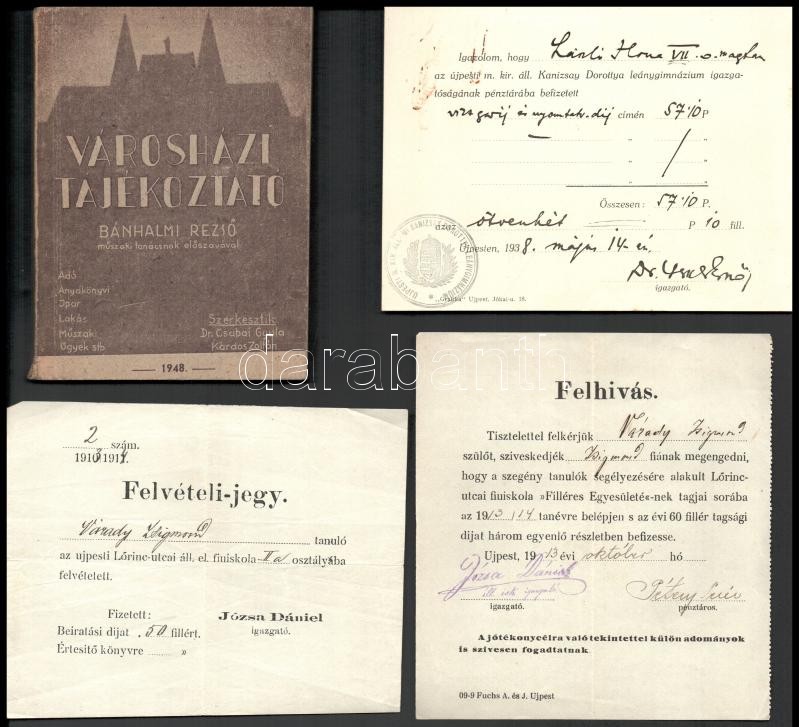 VÁROSHÁZI
TÁJÉKOZTATÓ
BÁNHALMI REZSŐ
műszaki tanácsnok előszavával
Adó
Anyakönyvi
Ipar
Lakás
Műszaki
Ügyek stb.
Szerkesztik:
Dr. Csabai Gyula
Kárdos Zoltán
1948.
Igazolom, hogy László Ilona VII. o. magtan
az újpesti m. kir. áll. Kanizsay Dorottya leánygimnázium igazga-
tóságának pénztárába befizetett
vizsgadíj és nyomtatv. díj címén 57·10 P
" "
" "
Összesen: 57·10 P.
azaz ötvenhét P 10 fill.
Ujpesten, 1938. május 14-én
Dr.
igazgató.
„Grafika" Ujpest, Jókai-u. 18.
darabanth.com
2 szám.
1913/1914.
Felvételi-jegy.
Várady Zsigmond tanuló
az ujpesti Lőrinc-utcai áll. el. fiuiskola II a osztályába
felvétetett.
Fizetett:
Beiratási dijat .50 fillért.
Értesitő könyvre "
Józsa Dániel
igazgató.
Felhivás.
Tisztelettel felkérjük Várady Zsigmond
szülőt, sziveskedjék Zsigmond fiának megengedni,
hogy a szegény tanulók segélyezésére alakult Lőrinc-
utcai fiuiskola »Filléres Egyesületé«-nek tagjai sorába
az 1913/14 tanévre belépjen s az évi 60 fillér tagsági
dijat három egyenlő részletben befizesse.
Ujpest, 1913 évi október hó
Józsa Dániel
áll. isk. igazgató
igazgató.
pénztáros.
A jótékonycélra való tekintettel külön adományok
is szivesen fogadtatnak.
09-9 Fuchs A. és J. Ujpest